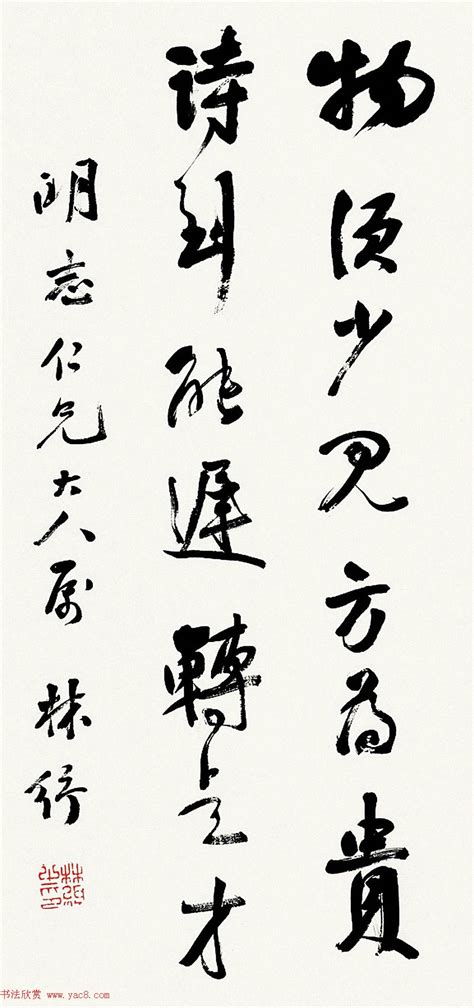 物須少見方為貴
詩到能遲轉是才
明志仁兄大人属 林紓
林紓之印
书法欣赏 www.yac8.com